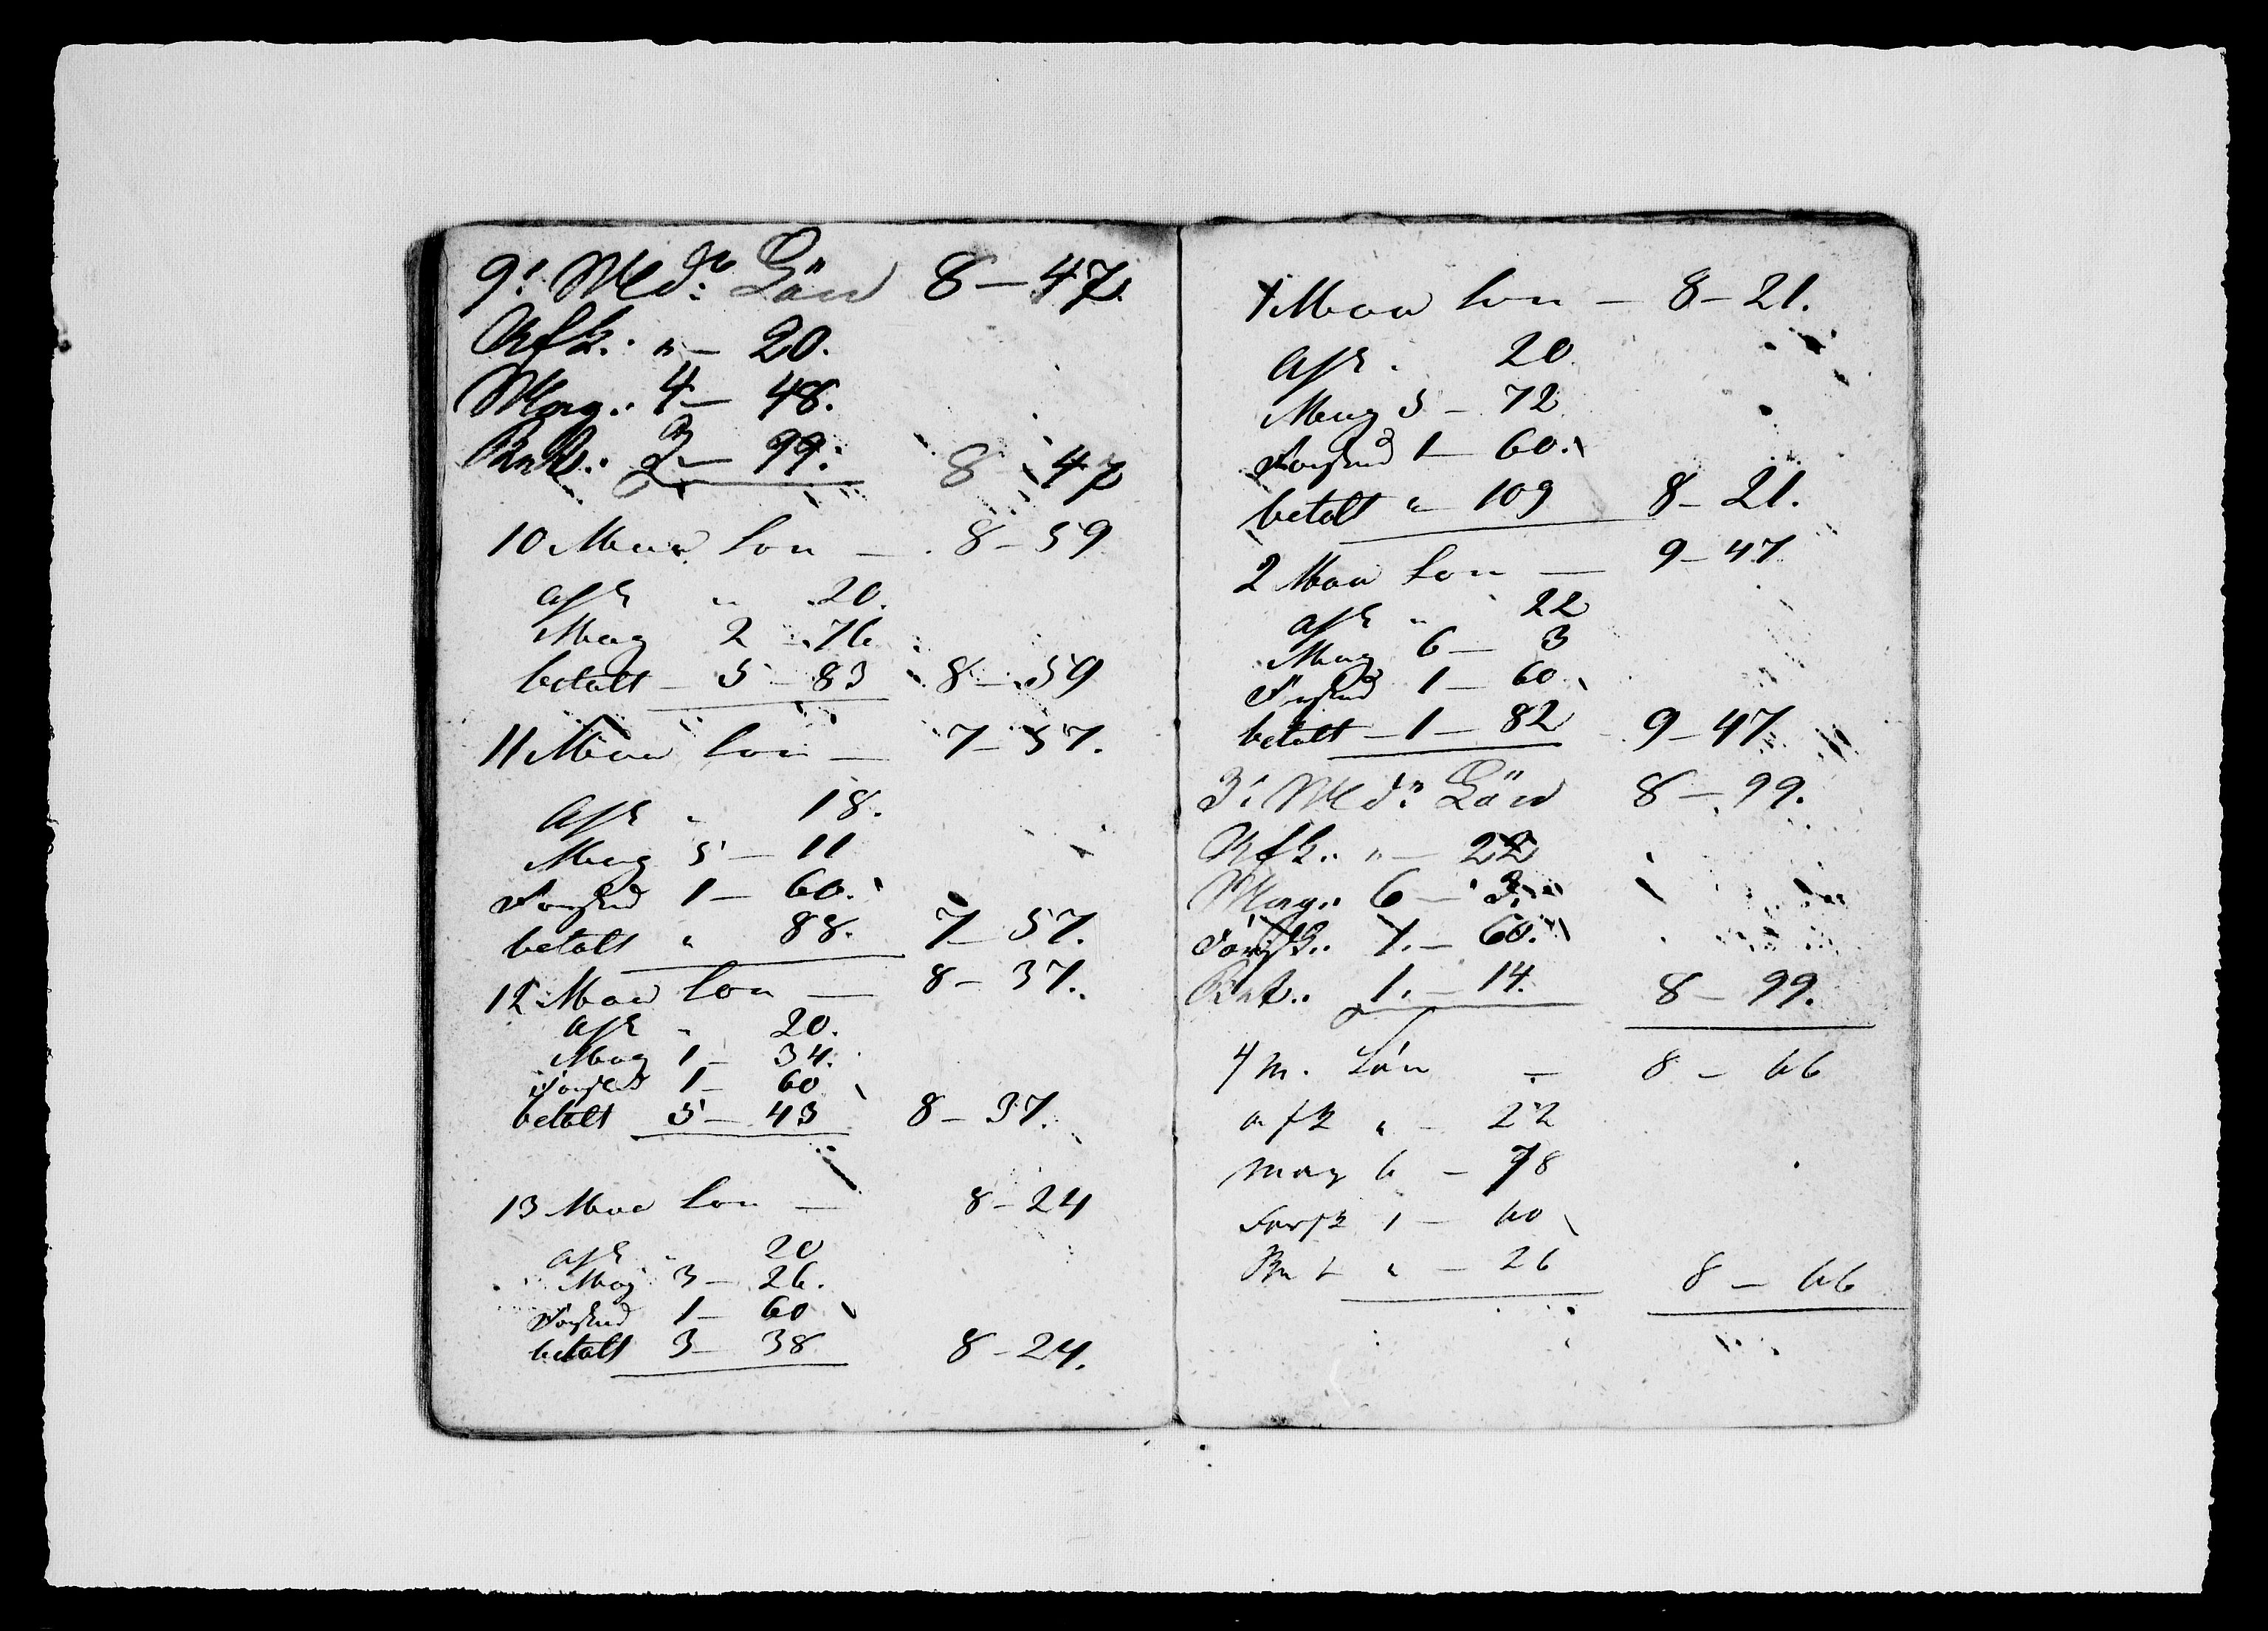 9: Mdr: Lön 8 – 47.
Afk: " – 20.
Mag: 4 – 48.
Btl: 3 – 99. 8 – 47
10 Maa Lon – 8 – 59
afk " 20.
Mag 2 – 76
betalt – 5 – 83 8 – 59
11 Maa Lon – 7 – 57.
afk " 18.
Mag 5 – 11
Forskud 1 – 60.
betalt " 88. 7 – 57.
12 Maa Lon – 8 – 37.
afk " 20.
Mag 1 – 34.
Forskud 1 – 60
betalt 5 – 43 8 – 37.
13 Maa Lon – 8 – 24
afk " 20
Mag 3 – 26.
Forskud 1 – 60
betalt 3 – 38 8 – 24.
1 Maa Lon – 8 – 21.
afk " 20.
Mag 5 – 72
Forskud 1 – 60.
betalt " 109 8 – 21.
2 Maa Lon – 9 – 47
afk " 22
Mag 6 – 3
Forskud 1 – 60
betalt – 1 – 82 9 – 47
3: Mdr: Lön 8 – 99.
Afk: " – 22
Mag: 6 – 3.
Forsk: 1. – 60.
Bet: 1. – 14. 8 – 99.
4 M. Lön – 8 – 66
afk " – 22
mag 6 – 78
Forsk 1 – 60
Bet " – 26 8 – 66